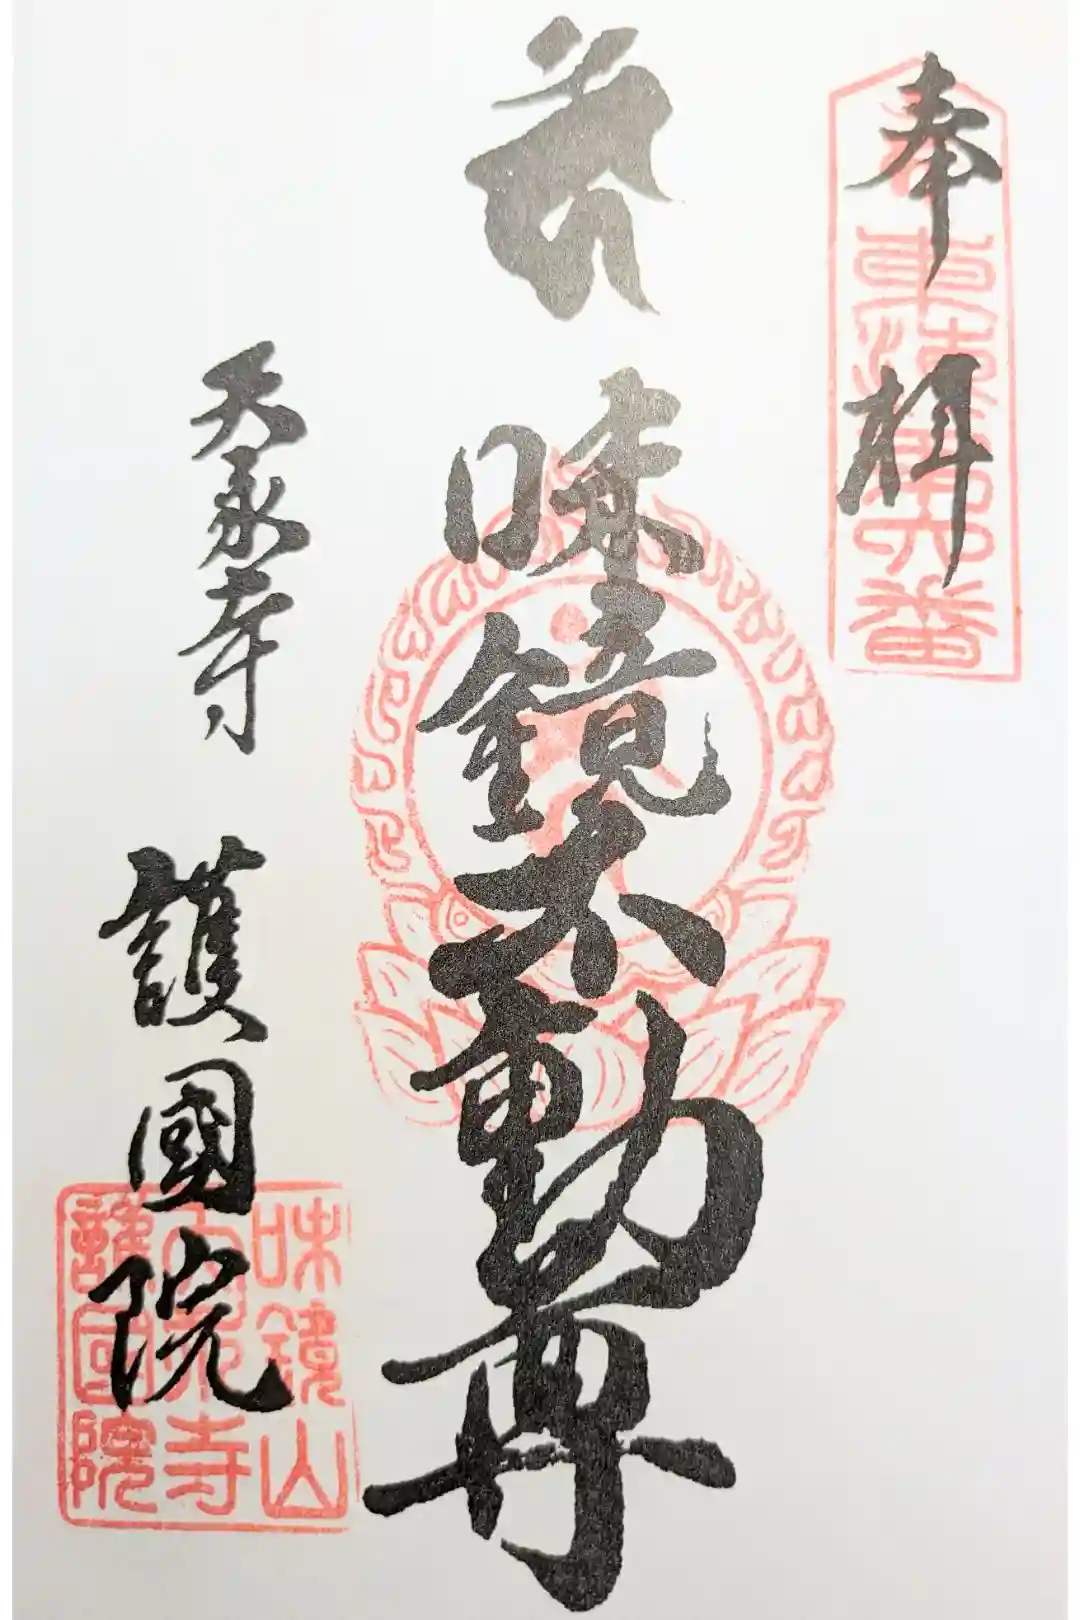 奉拝
東海第六番
味鏡不動尊
天永寺
護國院
味鏡山
天永寺
護國院